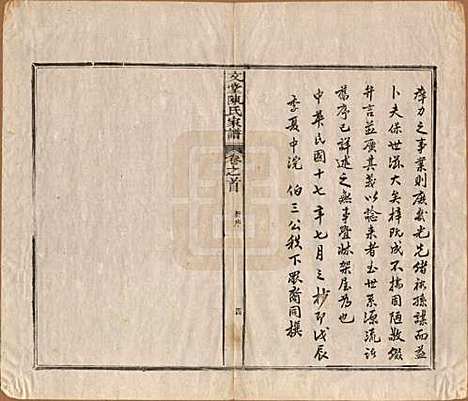 瘁力之事業則庶幾光先緒裕孫謀而益
卜夫保世滋大矣梓既成不揣固陋敬綴
弁言並廣其義以諗來者至世系源流詳
舊序已詳述之無事疊牀架屋為也
中華民國十七年七月之抄即戊辰
季夏中浣 伯三公秩下裔同撰
文堂陳氏家譜 卷之首 四